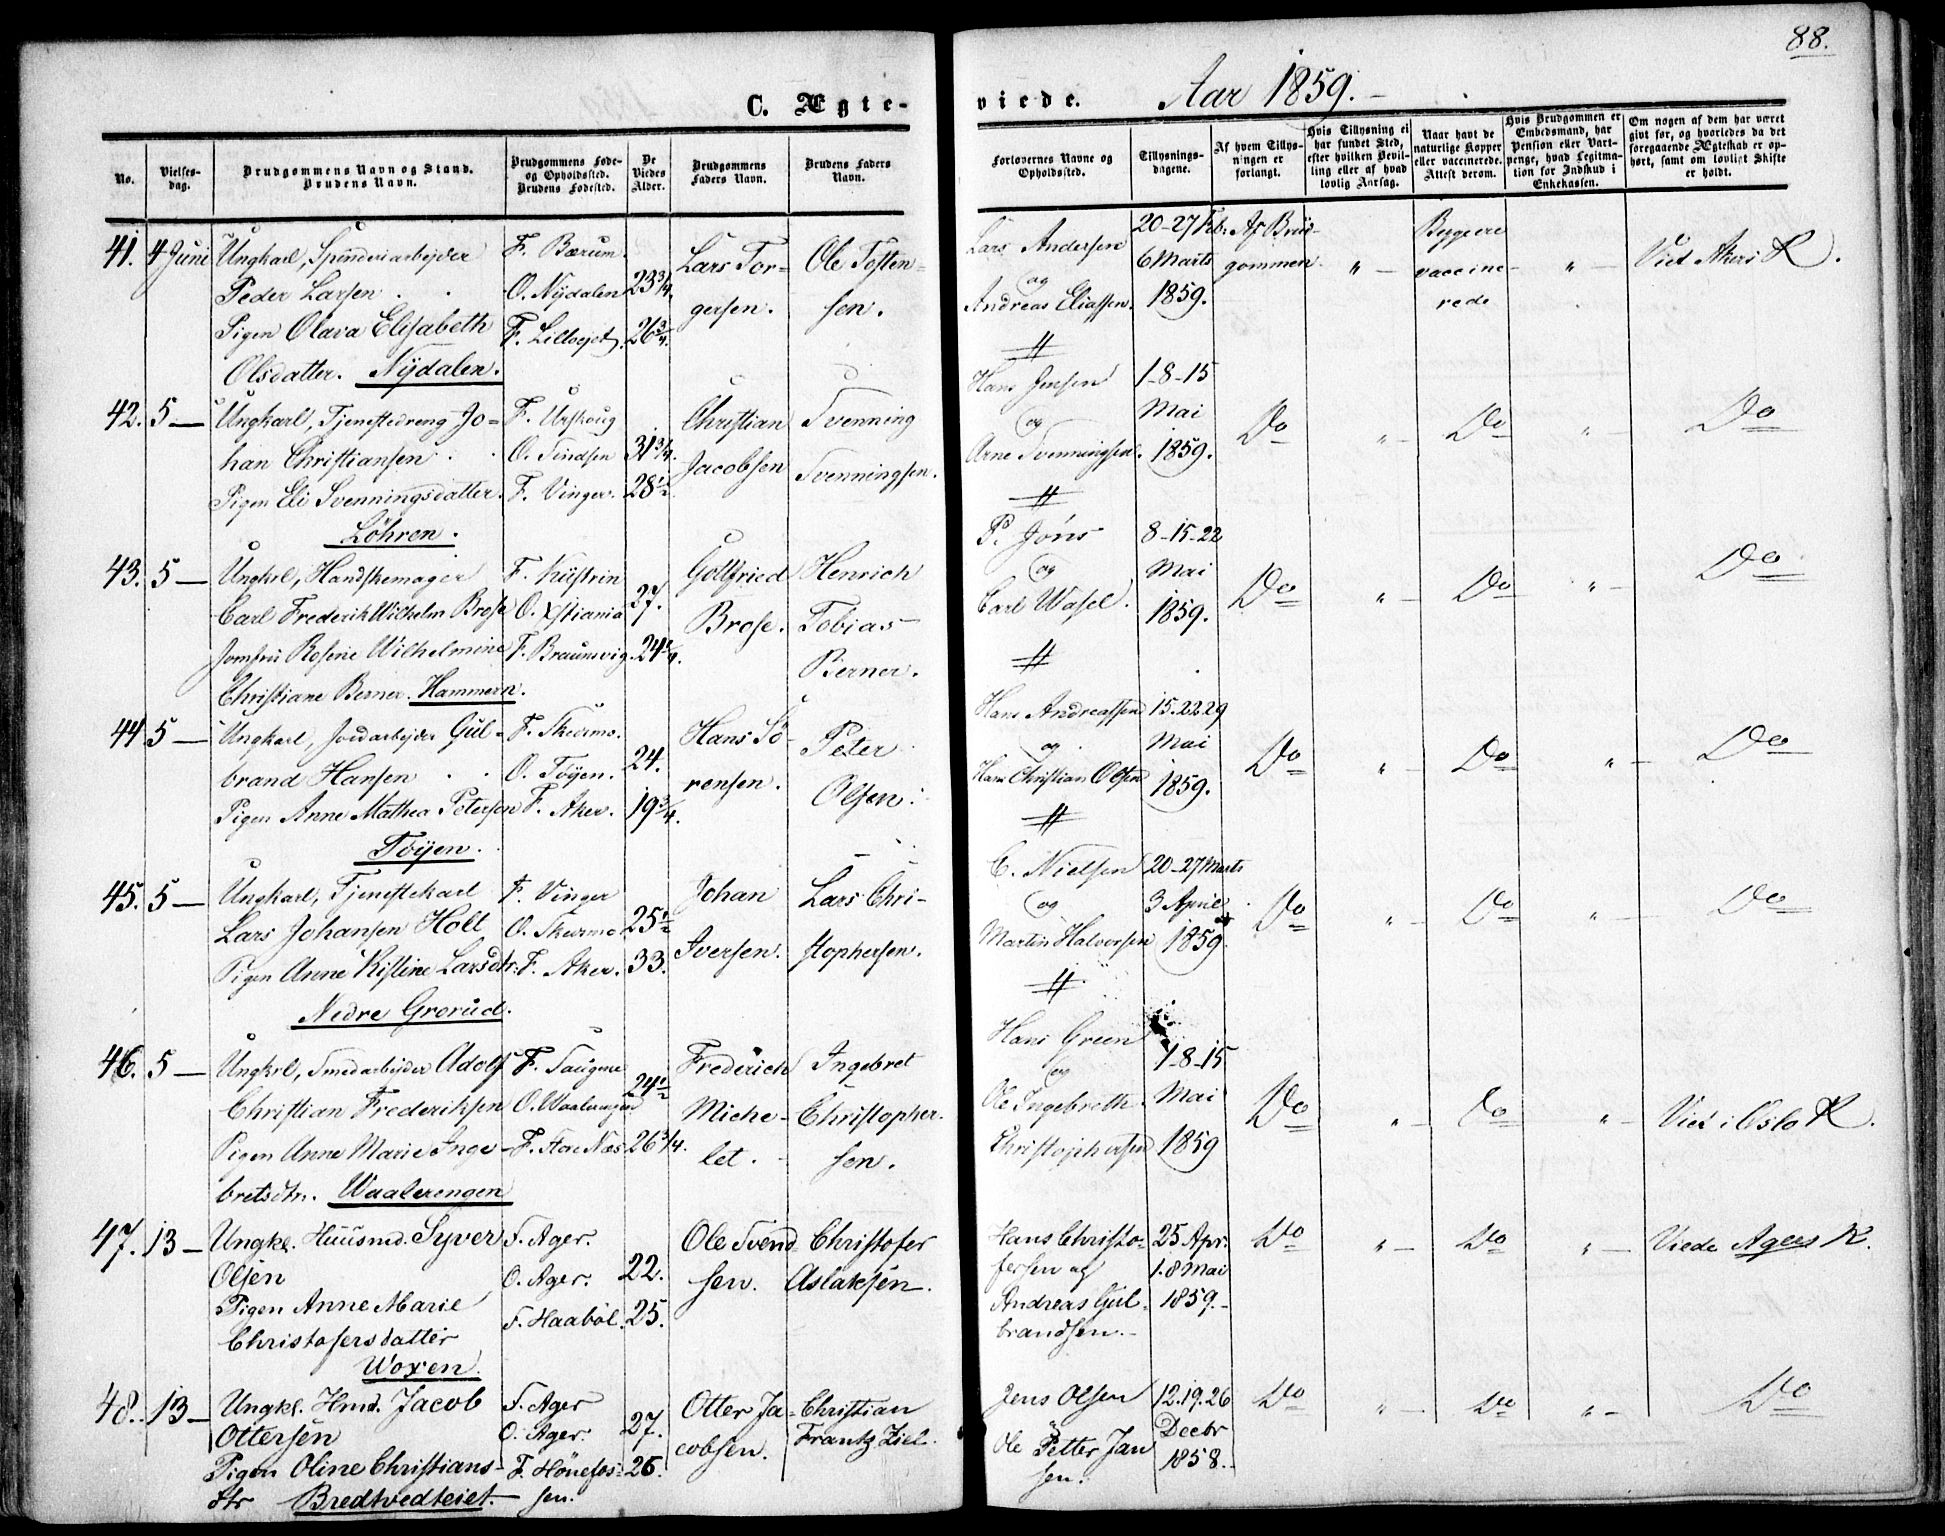 88.
C. Ægte-
viede. Aar 1859.
No.
Vielses-dag.
Brudgommens Navn og Stand. Brudens Navn.
Brudgommens Føde- og Opholdssted. Brudens Fødested.
De Viedes Alder.
Brudgommens Faders Navn.
Brudens Faders Navn.
Forlovernes Navne og Opholdssted.
Tillysnings-dagene.
Af hvem Tillysningen er forlangt.
Hvis Tillysning ei har fundet Sted, efter hvilken Bevilling eller af hvad lovlig Aarsag.
Naar havt de naturlige Kopper eller vaccinerede. Attest derom.
Hvis Brudgommen er Embedsmand, har Pension eller Vartpenge, hvad Legitimation for Indskud i Enkekassen.
Om nogen af dem har været givt før, og hvorledes da det foregaaende Ægteskab er ophørt, samt om lovligt Skifte er holdt.
41. 4 Juni Ungkarl, Spinderiarbejder F. Bærum. Lars Tor- Ole Tosten-
Peder Larsen O. Nydalen 23 3/4. gersen. sen.
Pigen Olava Elisabeth F. 26 3/4.
Olsdatter. Nydalen.
Lars Andersen 20-27 Feb. Af Brüd- Begge
og 6 Marts gommen. " vaccine- " Viet Akers K.
Andreas Eliassen. 1859. rede
42. 5 — Ungkarl, Tjenestedreng Jo- F. Urskoug Christian Svenning
han Christiansen O. 31 3/4. Jacobsen Svenningsen.
Pigen Eli Svenningsdatter. F. Vinger. 28 1/2
Löhren.
Hans Jensen 1-8-15
og Mai Do " Do " Do
Arne Svenningsen. 1859.
43. 5 — Ungkrl, Handskemager F. Küstrin Gottfried Henrich
Carl Frederik Wilhelm Brose O. Xstiania 27. Brose. Tobias
Jomfru Rosine Wilhelmine F. Braunsvig. 24 1/4. Berner.
Christiane Berner. Hammern.
P. Jøns 8-15-22
og Mai Do " Do " Do
Carl Wasel. 1859.
44. 5 — Ungkarl, Jordarbejder Gul- F. Skedsmo. Hans Sö- Peter
brand Hansen O. Töyen. 24. rensen. Olsen.
Pigen Anne Mathea Petersen F. Aker. 19 3/4.
Töyen.
Hans Andreassen 15.22.29
og Mai Do " Do " Do
Hans Christian Olsen 1859.
45. 5 — Ungkarl, Tjenestekarl F. Vinger Johan Lars Chri-
Lars Johansen Holt O. Skedsmo 25 1/2 Iversen. stophersen.
Pigen Anne Kistine Larsdtr. F. Aker. 33.
Nedre Grorud.
C. Nielsen 20-27 Marts
og 3 April Do " Do " Do
Martin Halvorsen 1859.
46. 5 — Ungkrl, Smedarbejder Adolf F. Frederich Ingebret
Christian Frederiksen O. Waalerengen 24 1/2 Miche- Christopher-
Pigen Anne Marie Inge- F. 26 3/4. let. sen.
bretsdtr. Waalerengen
Hans Green 1-8-15
og Mai
Ole Ingebreth Do " Do " Viet i Oslo K.
Christophersen 1859
47. 13 — Ungkl. Huusmd. Syver F. Ager. Ole Svend Christofer
Olsen O. Ager. 22. sen. Aslaksen.
Pigen Anne Marie F. Haaböl. 25.
Christofersdatter
Woxen.
Hans Christo- 25 Apr. Do " Do " Viede Agers K.
fersen og 1.8 Mai
Andreas Gul- 1859.
brandsen.
48. 13 — Ungkl. Hmd. Jacob F. Ager Otter Ja- Christian
Ottersen O. Ager. 27. cobsen. Frantz Ziel.
Pigen Oline Christians- F. Hönefos- 26.
dtr Bredtvedteiet. sen.
Jens Olsen 12.19.26 Do " Do " Do
Ole Petter Jan Decbr
sen. 1858.